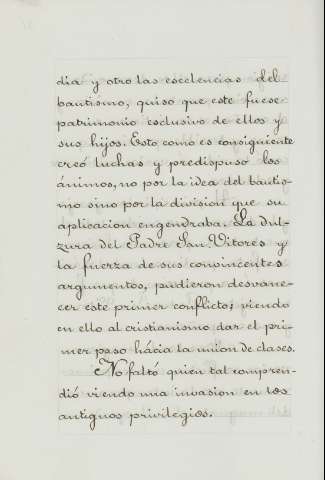 dia y otro las escelencias del
bautismo, quiso que este fuese
patrimonio esclusivo de ellos y
sus hijos. Esto como es consiguiente
creó luchas y predispuso los
ánimos, no por la idea del bautis-
mo sino por la division que su
aplicacion engendraba. La dul-
zura del Padre San Vitores y
la fuerza de sus convincentes
argumentos, pudieron desvane-
cer este primer conflicto; viendo
en ello al cristianismo dar el pri-
mer paso hácia la union de clases.
No faltó quien tal compren-
dió viendo una invasion en los
antiguos privilegios.